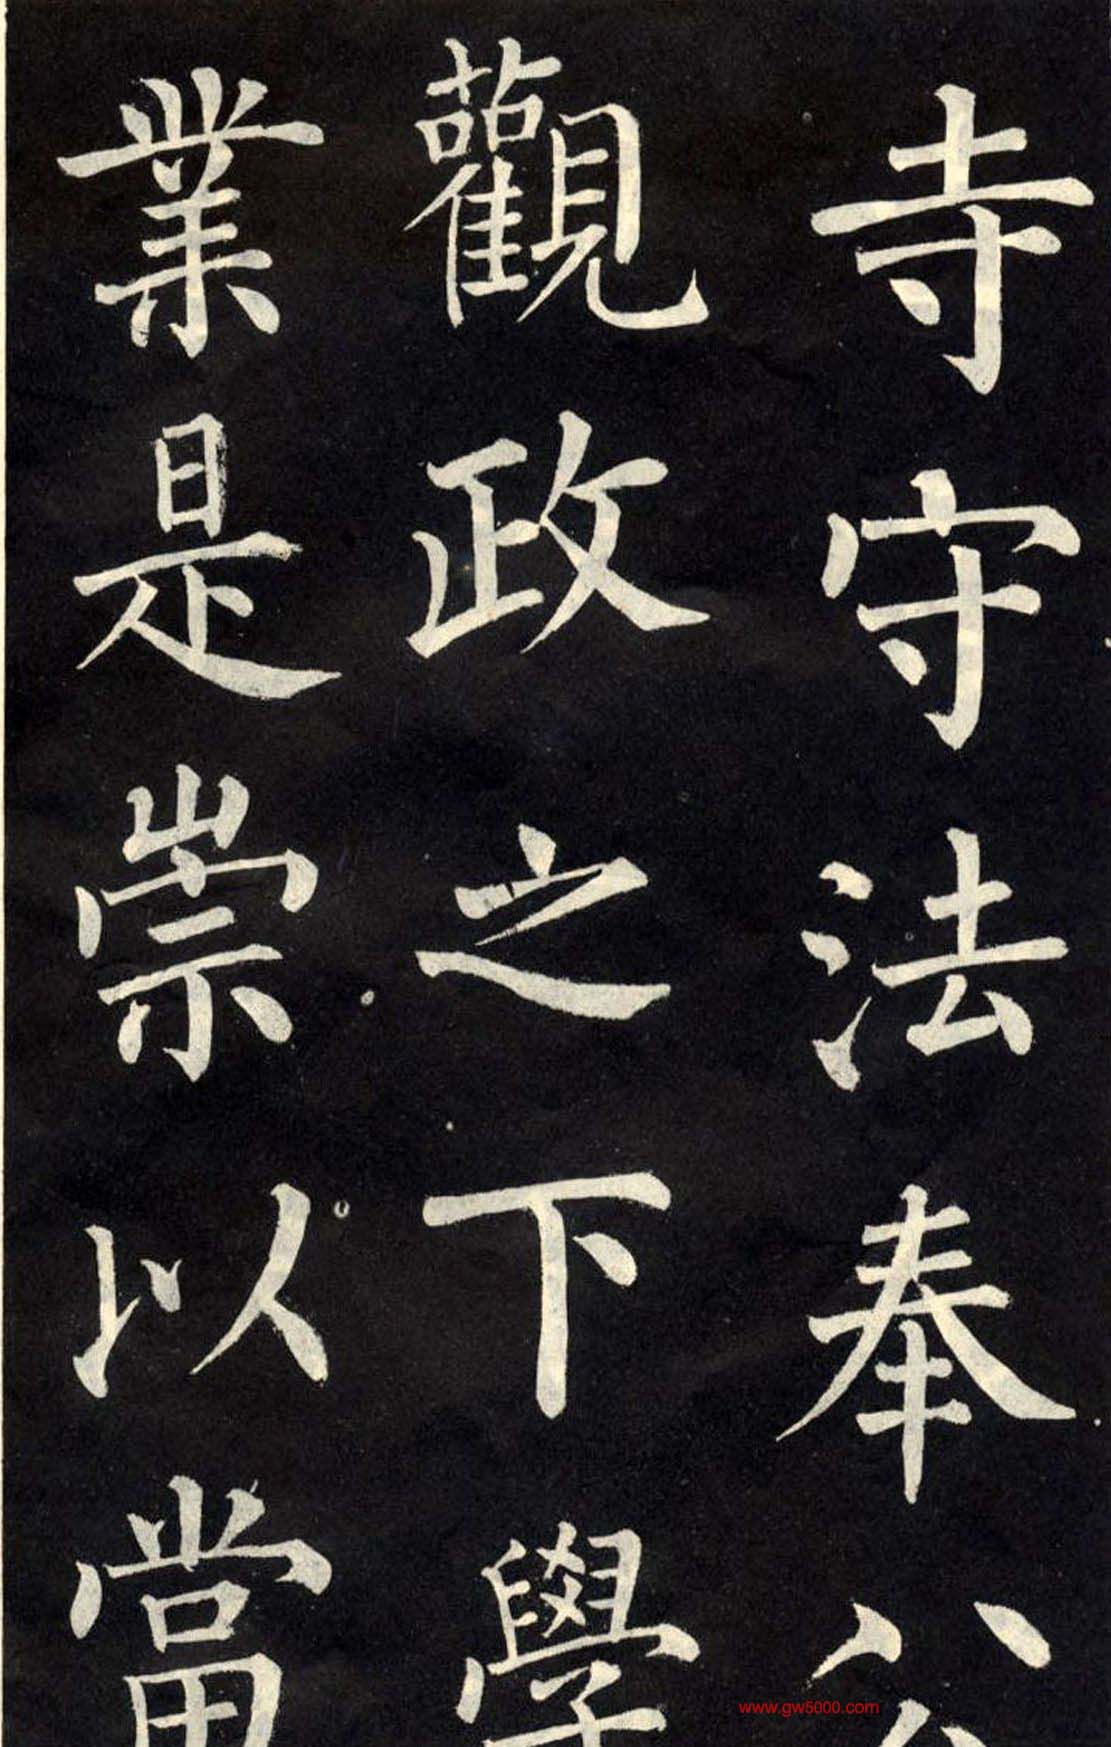 寺守法奉公
觀政之下學
業是崇以當
www.gw5000.com